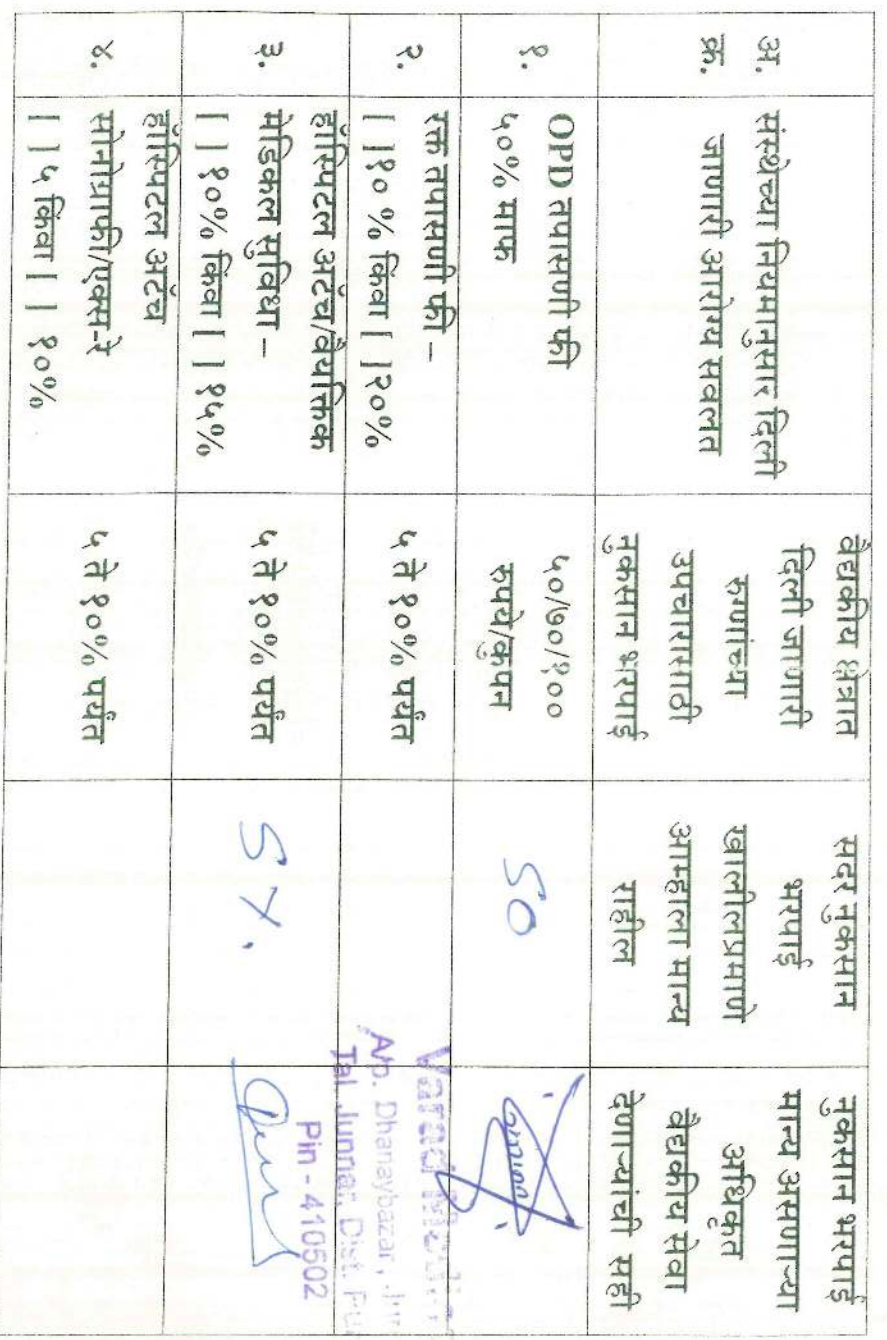 अ.
क्र.
संस्थेच्या नियमानुसार दिली
जाणारी आरोग्य सवलत
वैद्यकीय क्षेत्रात
दिली जाणारी
रुग्णांच्या
उपचारासाठी
नुकसान भरपाई
सदर नुकसान
भरपाई
खालीलप्रमाणे
आम्हाला मान्य
राहील
नुकसान भरपाई
मान्य असणाऱ्या
अधिकृत
वैद्यकीय सेवा
देणाऱ्यांची सही
१.
OPD तपासणी फी
५०% माफ
५०/७०/१००
रुपये/कुपन
50
२.
रक्त तपासणी फी –
[ ]१० % किंवा [ ]२०%
५ ते १०% पर्यंत
Varad
A/p. Dhanaybazar,
Tal. Junnar, Dist.
Pin - 410502
३.
हॉस्पिटल अटॅच/वैयक्तिक
मेडिकल सुविधा –
[ ] १०% किंवा [ ] १५%
५ ते १०% पर्यंत
5%.
४.
हॉस्पिटल अटॅच
सोनोग्राफी/एक्स-रे
[ ] ५ किंवा [ ] १०%
५ ते १०% पर्यंत